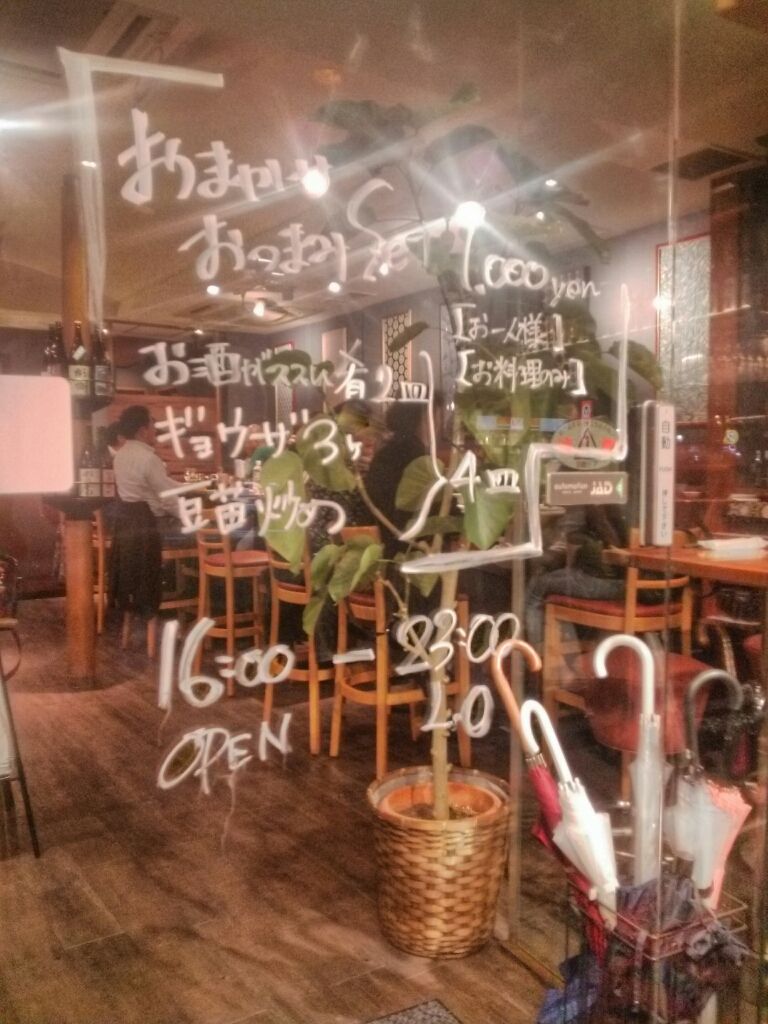 おまかせ
おつまみSet 1,000yen
お酒がススム肴2皿
[お一人様]
[お料理のみ]
ギョウザ3ヶ
豆苗炒め
4皿
16:00 - 23:00
OPEN
L.O
自動
automation
JAD